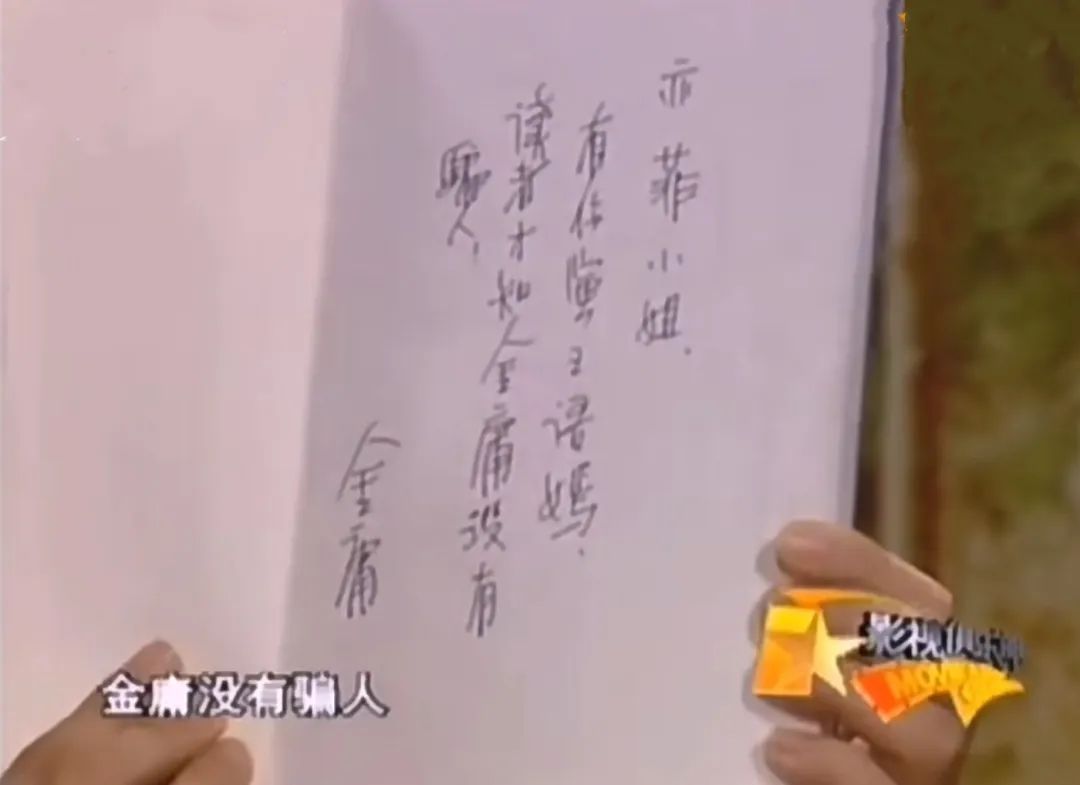 亦菲小姐.
有你演王语嫣.
读者才知金庸没有
骗人.
金庸
金庸没有骗人
影视俱乐部
MOVIE